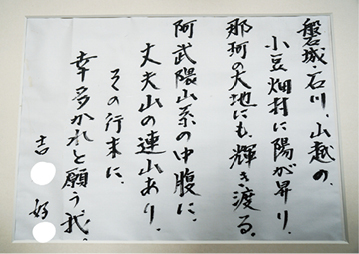 磐城・石川、山越の、
小豆畑村に陽が昇り、
那珂の大地にも、輝き渡る。
阿武隈山系の中腹に、
丈夫山の連山あり、
その行末に、
幸多かれと願う我。
吉 好